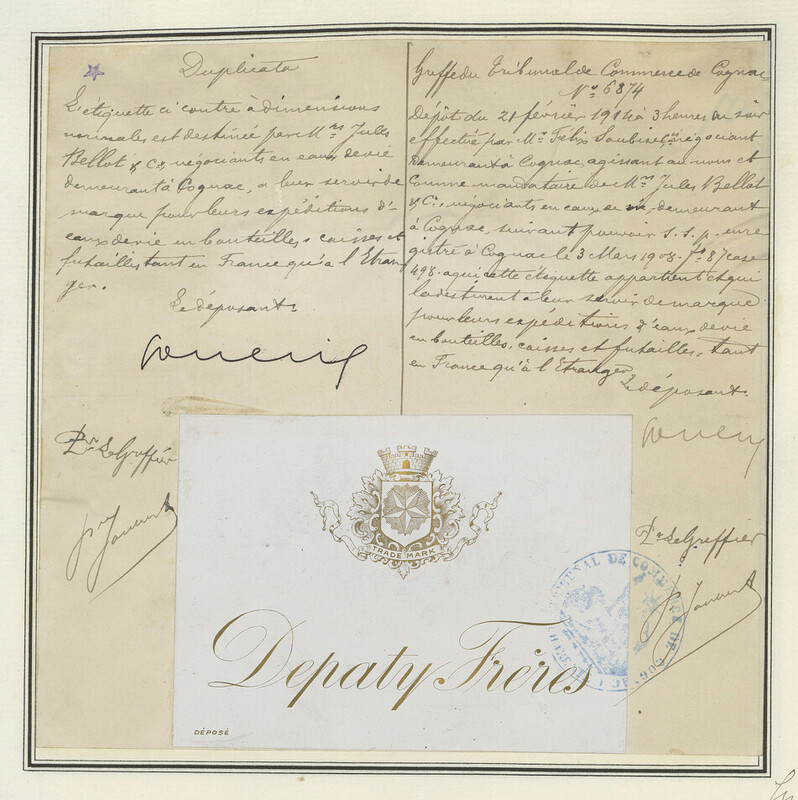 Duplicata
L'étiquette ci contre à dimensions
normales est destinée par Mrs Jules
Bellot & Cie, négociants en eaux de vie
demeurant à Cognac, a leur servir de
marque pour leurs expéditions d'
eaux de vie en bouteilles, caisses et
futailles tant en France qu'à l'Etran
ger.
Le déposant.
Pr. Le Greffier
Greffe du Tribunal de Commerce de Cognac
No 6874
Dépôt du 21 février 1914 à 3 heures du soir
effectué par Mr. Félix négociant
demeurant à Cognac, agissant au nom et
comme mandataire de Mrs Jules Bellot
& Cie, négociants en eaux de vie, demeurant
à Cognac, suivant pouvoir s.s.p. enre
gistré à Cognac le 3 Mars 1908. Fo 87 case
498. a qui cette étiquette appartient et qui
la destinent a leur servir de marque
pour leurs expéditions d'eaux de vie
en bouteilles, caisses et futailles, tant
en France qu'à l'Etranger
Le déposant.
Pr Le Greffier
TRADE MARK
Depaty Frères
DÉPOSÉ
TRIBUNAL DE COMMERCE DE COGNAC